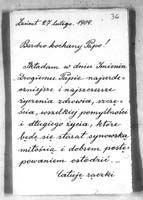 36
Zürich 27 lutego. 1909.
Bardzo kochany Papo!
Składam w dniu Imienia
Drogiemu Papie najserde-
czniejsze i najszczersze
życzenia zdrowia, szczę-
ścia, wszelkiej pomyślności
i długiego życia, które
będę się starać synowską
miłością i dobrem postę-
powaniem osłodzić. _
Całuję rączki